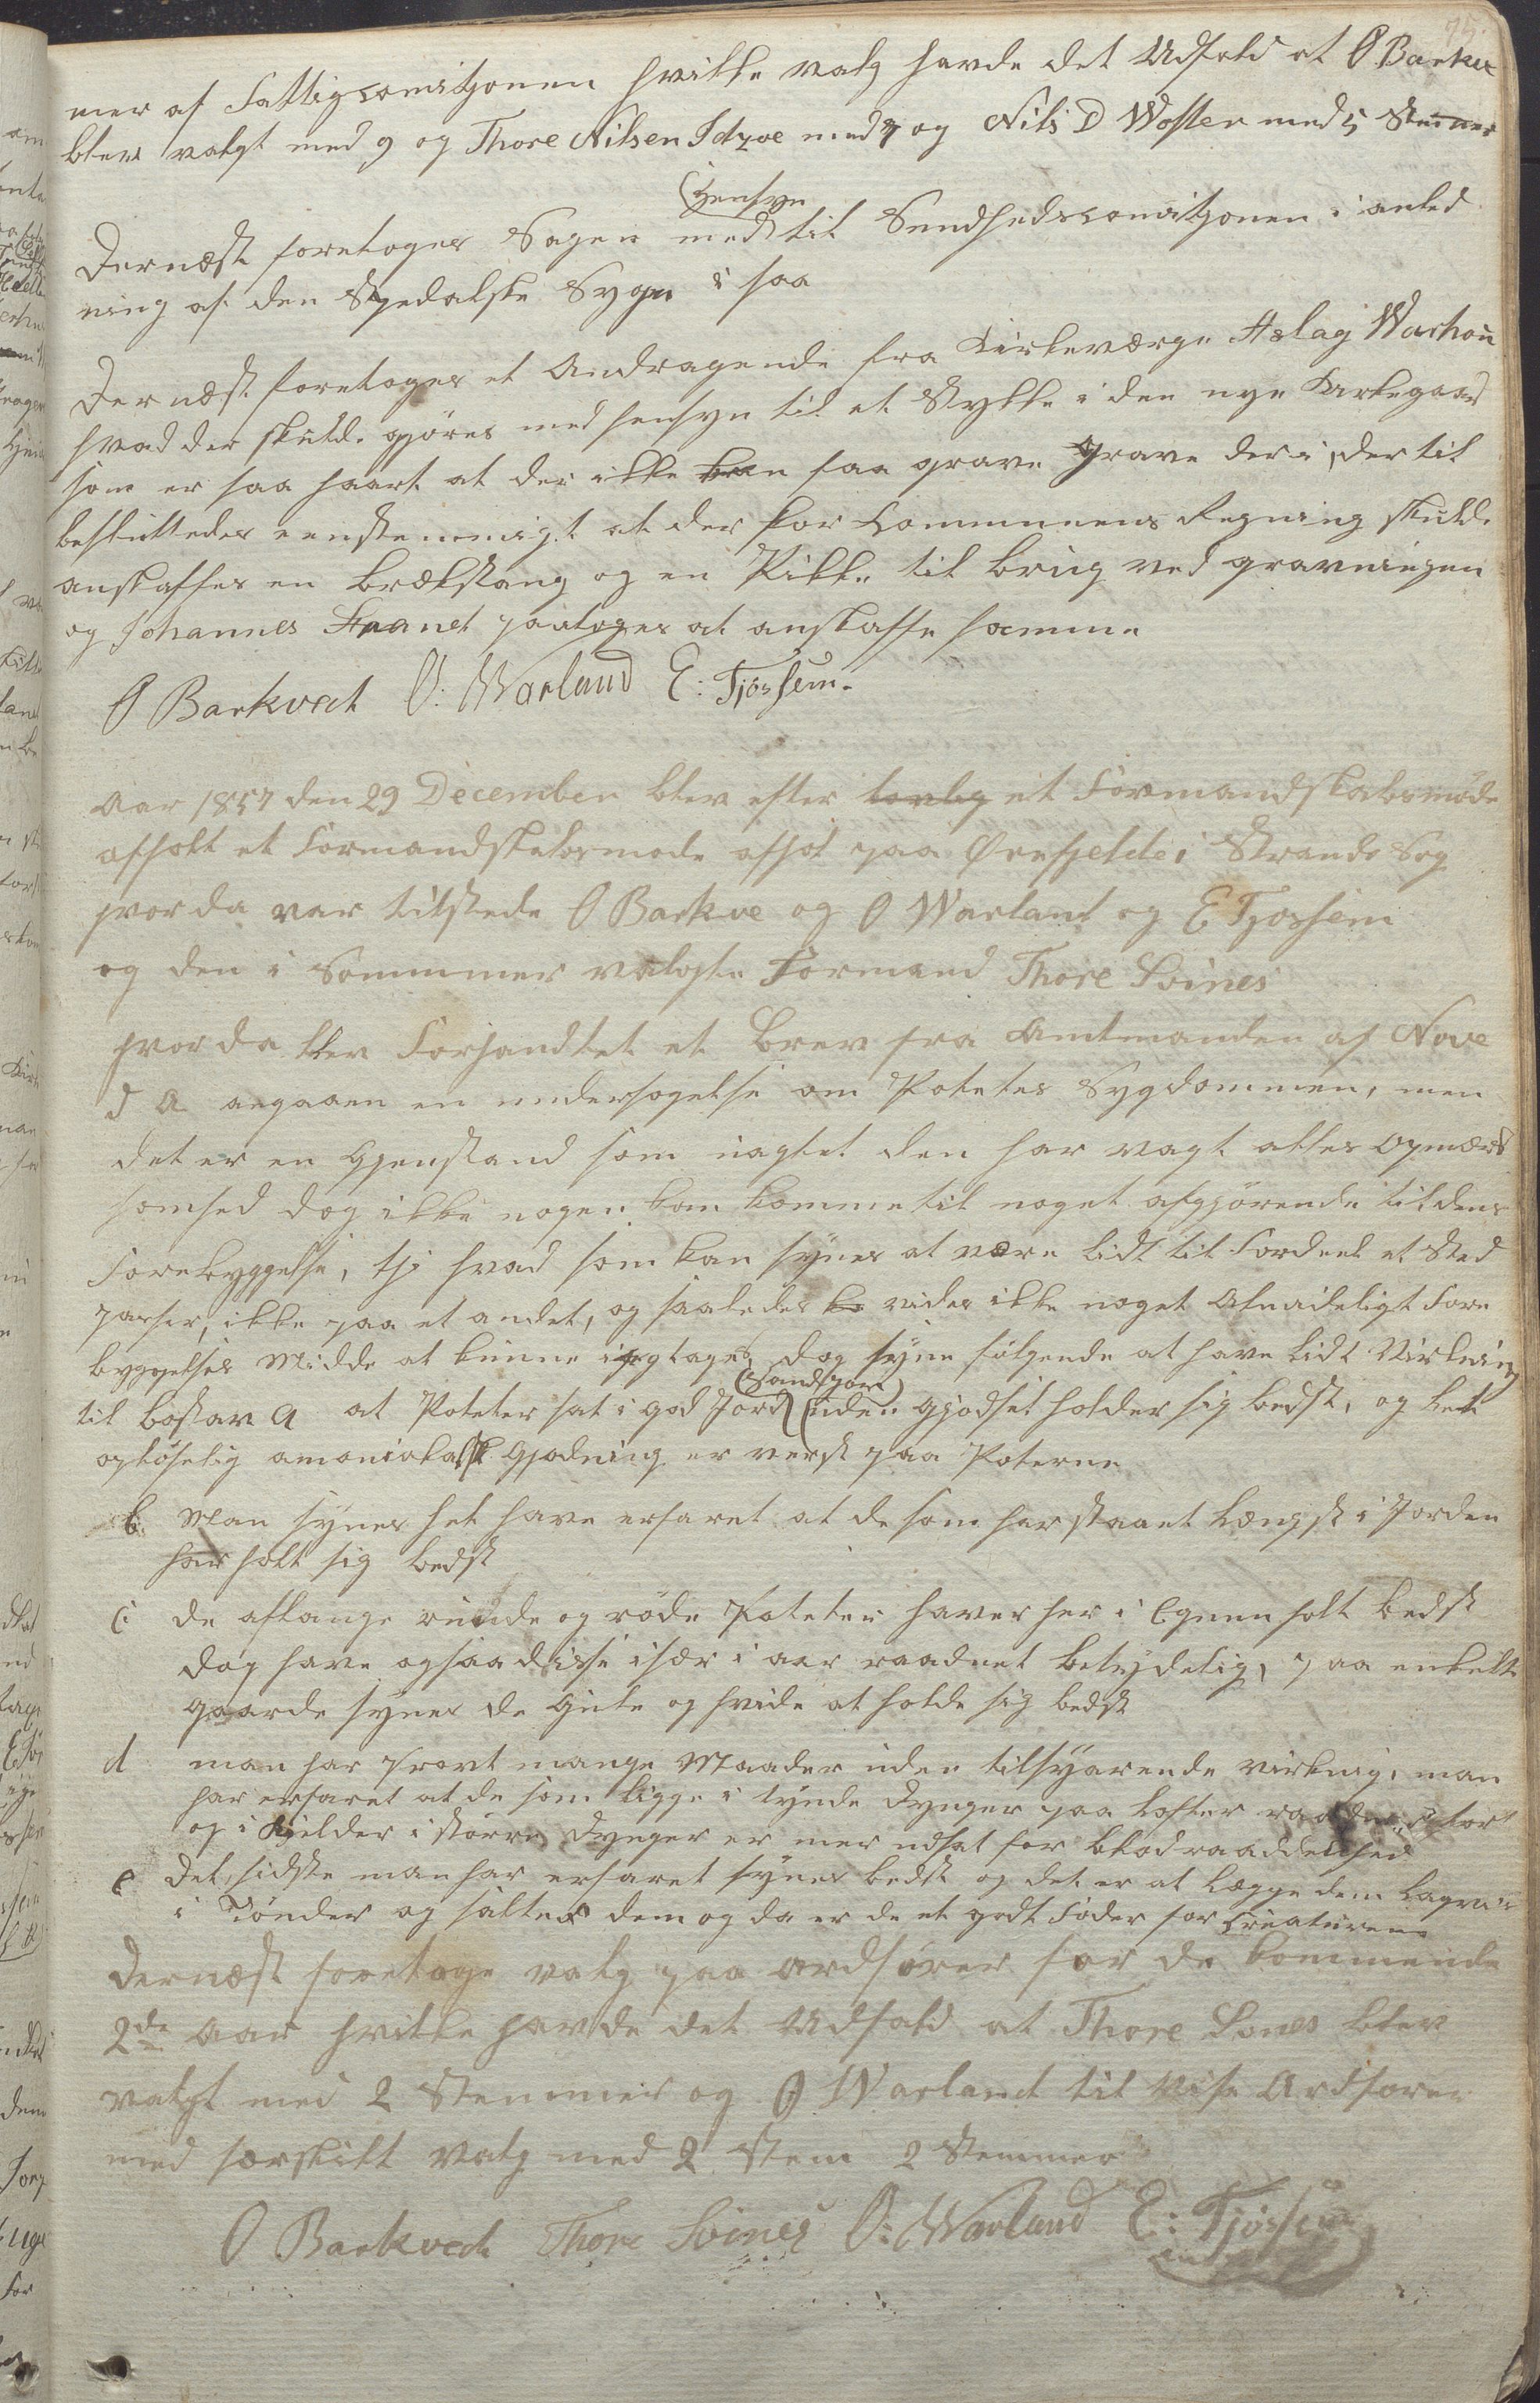 75.
mer af Fattigcomitjonen hvilke valg havde det Udfald at O Barkve
blev valgt med 9 og Thore Nilsen Idzøe med 7 og Nils D Woster med 5 Stemer
Hensyn
Dernæst foretoges Sagen med til Sundhedscomitjonen i anled
ning af den Spedalske Syge i saa
Dernæst foretoges et Andragende fra Kirkeværge Aslag
hvad der skuld. gjøres med hensyn til et Stykke i den nye Kirkegaard
som er saa haart at der ikke kan faa grave Grave deri, dertil
besluttedes eenstemmigt at der for Communens Regning skuld.
anskaffes en brækstang og en Pikke til brug ved gravningen
og Johannes paatoges at anskaffe samme
O Barkved O: Warland E: Tjössem.
Aar 1857 den 29 December blev efter lovlig et Formandskabsmøde
afholt et Formandskabsmøde afhol paa Ørefjelde i Strands Sog
hvor da var tilstede O Barkve og O Warland og E Tjossem
og den i Sommmer valgte Formand Thore Svines
hvor da blev Forhandlet et brev fra Amtmanden af Nove
d A angaaen en undersøgelse om Potetes Sygdommen, men
det er en Gjenstand som uagtet den har vagt alles Opmærk
somhed dog ikke nogen kan komme til noget afgjörende til dens
Forebyggelse, thi hvad som kan synes at være lidt til Fordeel et Sted
passer, ikke paa et andet, og saaledes ka vides ikke noget Almideligt Fore
byggelses Midde at kunne iagtages, dog syne følgende at have lidt Virkning
(Sandjor)
til bostav A at Poteter sat i god Jord (uden gjødsel holder sig bedst, og let
opløselig amoniakalsk Gjødning er verst paa Poterne
b Man synes het have erfaret at de som har staaet Længst i Jorden
har holt sig bedst
C de aflange runde og røde Poteter haver her i Egnen holt bedst
dog have ogsaa disse især i aar raadnet betydelig, paa enkelte
gaarde synes de Gule og hvide at holde sig bedst
d man har prøvt mange Maader uden tilsvarende virkning, man
har erfaret at de som ligge i tynde Dynger paa Lofter raadner tørt
og i Kjelder i større Dynger er mer udsat for blød raaddenhed
e Det sidste man har erfaret synes bedst og det er at Lægge dem Lagvis
i Tønder og salte dem og da er de et godt Foder for Creaturene
Dernæst foretoge valg paa Ordfører for de kommende
2de Aar hvilke havde det Udfald at Thore Sines blev
valgt med 2 Stemmer og O Warland til Vise Ordfører
med særskilt Valg med 2 Stem 2 Stemmer
O Barkved Thore Svines O: Warland E: Tjössem